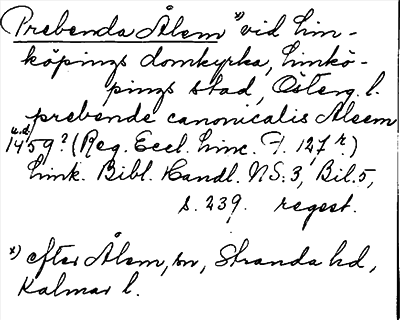 Prebenda Ålem x) vid Lin-
köpings domkyrka, Linkö-
pings stad, Österg. l.
prebende canonicalis Alsem
u.d.
1459? (Reg. Eccl. Linc. F. 127 r.)
Link. Bibl. Handl. NS: 3, Bil. 5,
s. 239. regest.
x) efter Ålem, sn, Stranda hd,
Kalmar l.